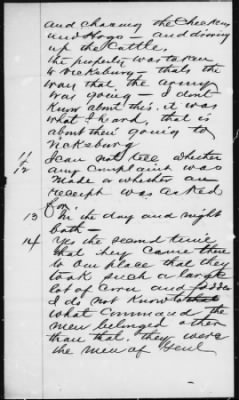 and chasing the Chickens
and Hogs - and driving
up the Cattle.
the property was taken
to Vicksburg - thats the
way that the army
was going - I dont
know about this, it was
what I heard, that is
about their going to
Vicksburg
11 I can not tell whether
12 any Complaint was
made or whether an
receipt was asked
for
13 In the day and night
both -
14 Yes the second time
that they came there
to our place that they
took such a large
lot of Corn and fodder
I do not know
what Command the
men belonged other
than that, they were
the men of Genl